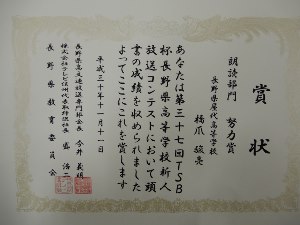 賞状
朗読部門 努力賞
長野県屋代高等学校
橋爪 駿亮
あなたは第三十七回TSB
杯長野県高等学校新人
放送コンテストにおいて頭
書の成績を収められました
よってここにこれを賞します
平成三十年十一月十一日
長野県高文連放送専門部会長 今井 義明
株式会社テレビ信州代表取締役社長 盛 浩二
長野県教育委員会